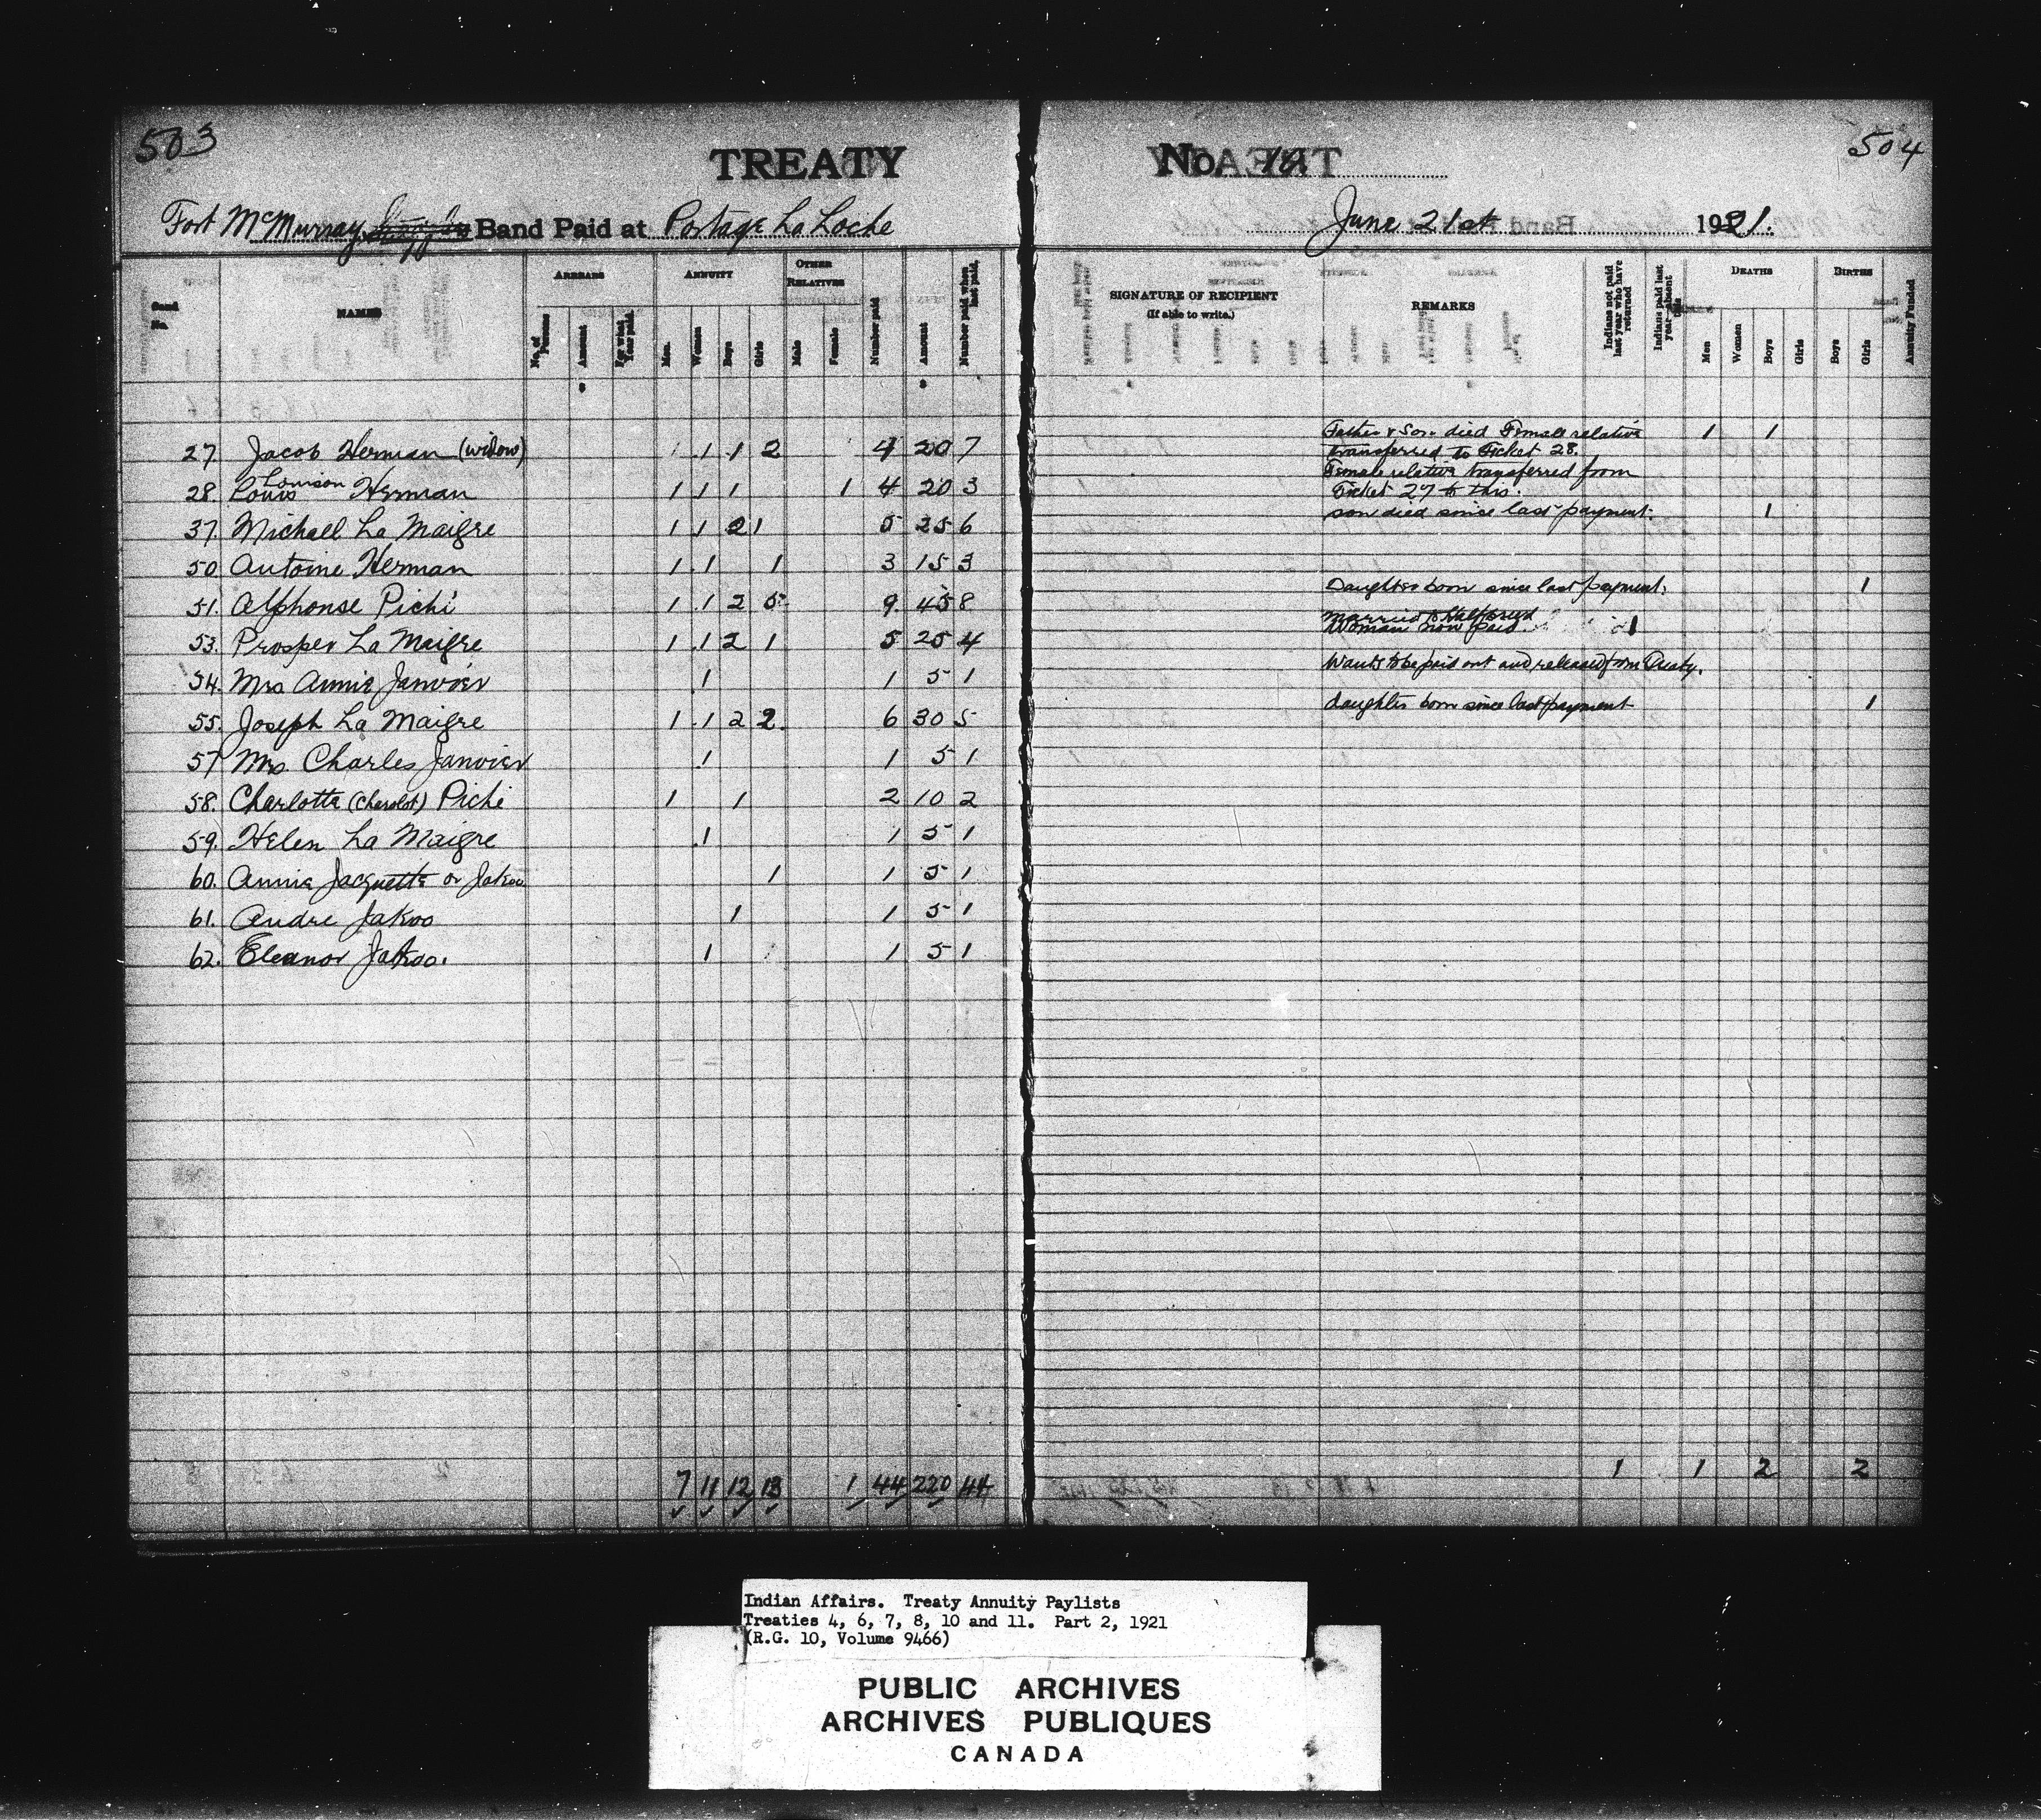 503
504
TREATY No. 10
Fort McMurray Band Paid at Portage La Loche June 21st 1921.
Band No.
NAMES
ARREARS
No. of Persons
Amount
For what Year paid.
ANNUITY
Men.
Women
Boys
Girls
OTHER RELATIVES
Male
Female
Number paid
Amount
Number paid when last paid.
SIGNATURE OF RECIPIENT
(If able to write.)
REMARKS
Indians not paid last year who have returned
Indians paid last year absent this
DEATHS
Men
Women
Boys
Girls
BIRTHS
Boys
Girls
Annuity Funded
27. Jacob Herman (widow) 1 1 2 4 20 7 Father & Son died Female relative transferred to Ticket 28. 1 1
28. Louis Louison Herman 1 1 1 1 4 20 3 Female relative transferred from Ticket 27 to this.
37. Michael La Maigre 1 1 2 1 5 25 6 son died since last payment. 1
50. Antoine Herman 1 1 1 3 15 3
51. Alphonse Piché 1 1 2 5 9 45 8 Daughter born since last payment. 1
53. Prosper La Maigre 1 1 2 1 5 25 4 Married to Halfbreed Woman now paid. 1
54. Mrs Annie Janvier 1 1 5 1 Wants to be paid out and released from Treaty.
55. Joseph La Maigre 1 1 2 2 6 30 5 daughter born since last payment 1
57 Mrs. Charles Janvier 1 1 5 1
58. Charlotte (Charolot) Piché 1 1 2 10 2
59. Helen La Maigre 1 1 5 1
60. Annie Jacquette or Jakoo 1 1 5 1
61. Andre Jakoo 1 1 5 1
62. Eleanor Jakoo. 1 1 5 1
7 11 12 13 1 44 220 44 1 1 2 2
Indian Affairs. Treaty Annuity Paylists
Treaties 4, 6, 7, 8, 10 and 11. Part 2, 1921
(R.G. 10, Volume 9466)
PUBLIC ARCHIVES
ARCHIVES PUBLIQUES
CANADA